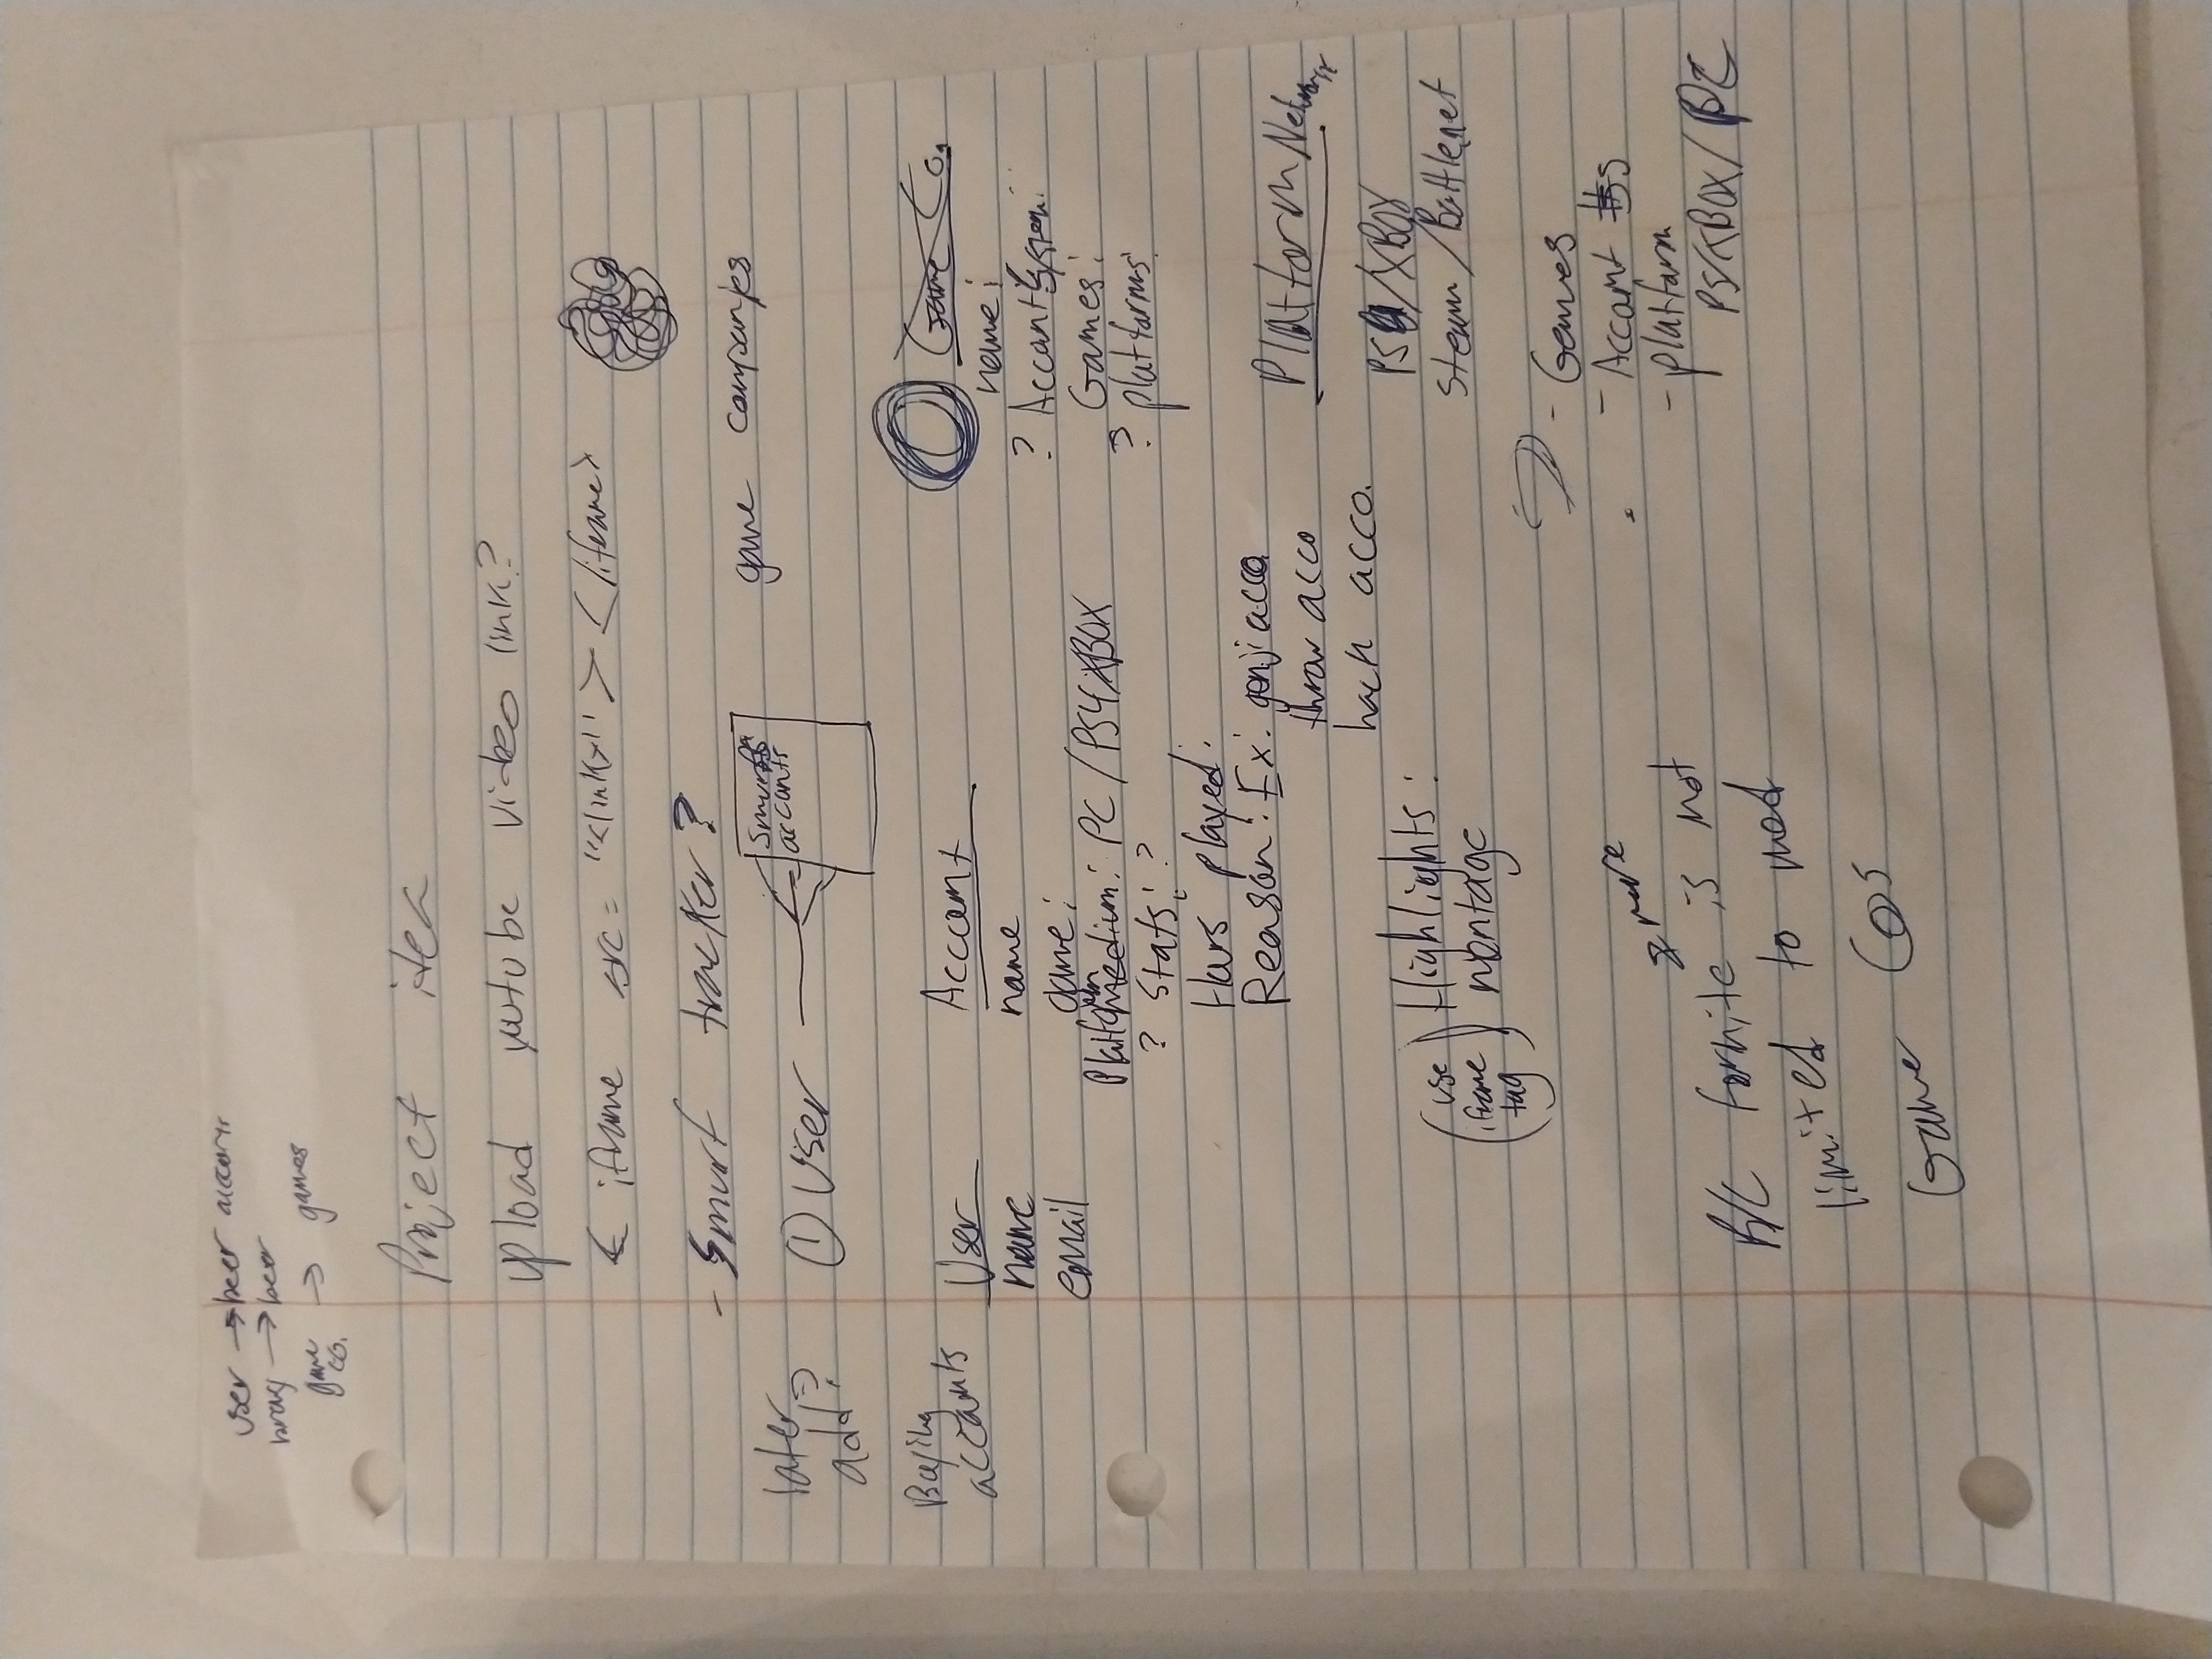 user → beer accounts
→ beer
game co. → games
Project idea
upload youtube video link?
< iframe src = "<link>" > </iframe>
- Smurf tracker?
game companies
later add?
① User
Smurfs accounts
Buying accounts
User
name
email
Account
name
game:
Platform medium: PC / PS4 XBOX
? Stats: ?
Hours played:
Reason: Ex: genji acco
throw acco
hack acco.
(use iframe tag)
Highlights:
montage
Game Co.
name:
? Account System:
Games:
? platforms:
Platform Network
PS / XBOX
Steam / Battlenet
- Games
- Account #s
- platform
PS/XBOX/PC
more
B/C fornite is not
limited to
Game Cos